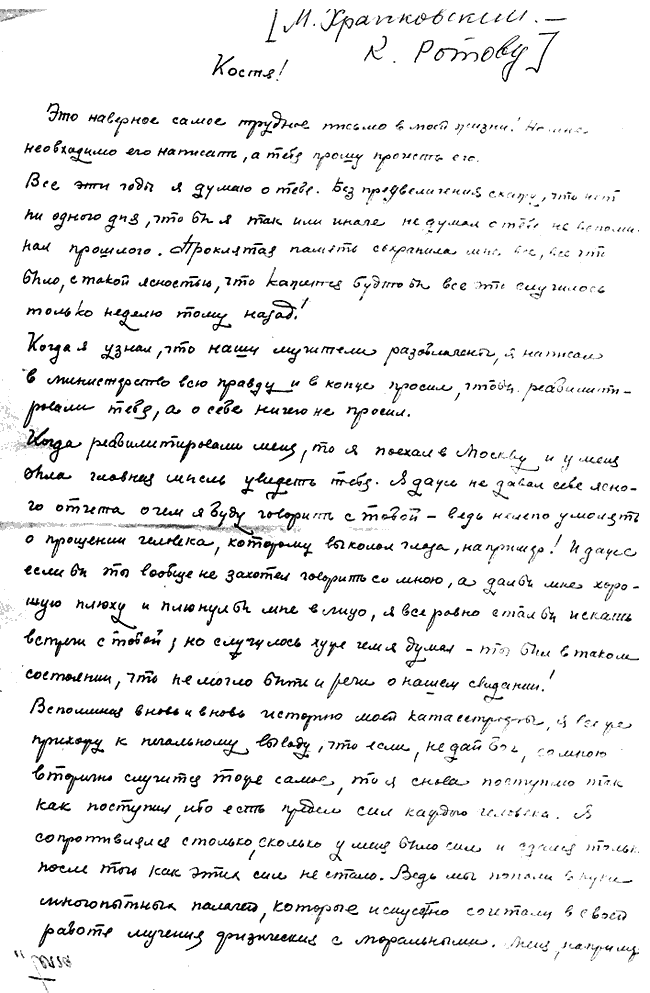 [М. Храпковский. —
К. Ротову]
Костя!
Это наверное самое трудное письмо в моей жизни! Но мне
необходимо его написать, а тебя прошу прочесть его.
Все эти годы я думаю о тебе. Без преувеличения скажу, что нет
ни одного дня, что бы я так или иначе не думал о тебе не вспоми-
нал прошлого. Проклятая память сохранила мне все, все что
было, с такой ясностью, что кажется будто бы все это случилось
только неделю тому назад!
Когда я узнал, что наши мучители разоблачены, я написал
в министерство всю правду и в конце просил, чтобы реабилит-
ровали тебя, а о себе ничего не просил.
Когда реабилитировали меня, то я поехал в Москву и у меня
была главная мысль увидеть тебя. Я даже не давал себе ясно-
го отчета о чем я буду говорить с тобой – ведь нелепо умолять
о прощении человека, которому выколол глаза, например! И даже
если бы ты вообще не захотел говорить со мною, а дал бы мне хоро-
шую плюху и плюнул бы мне в лицо, я все равно стал бы искать
встречи с тобой; но случилось хуже чем я думал – ты был в таком
состоянии, что не могло быти и речи о нашем свидании!
Вспоминая вновь и вновь историю моей катастрофы, я все же
прихожу к печальному выводу, что если, не дай бог, со мною
вторично случится тоже самое, то я снова поступлю так
как поступил, ибо есть предел сил каждого человека. Я
сопротивлялся столько, сколько у меня было сил и сдался только
после того как этих сил не стало. Ведь мы попали в руки
многопытных палачей, которые искусно сочетали в своей
работе мучения физические с моральными. Меня, например